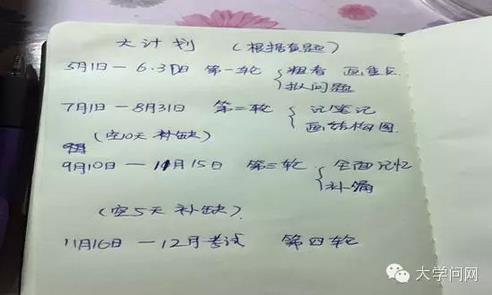 大计划 (根据真题)
5月1日 — 6.30日 第一轮 { 粗看 画重点
拟问题
7月1日 — 8月31日 第二轮 { 记笔记
画结构图
(空10天 补缺)
9月10日 — 11月15日 第三轮 { 全面记忆
补漏
(空5天 补缺)
11月16日 — 12月考试 第四轮
大学问网